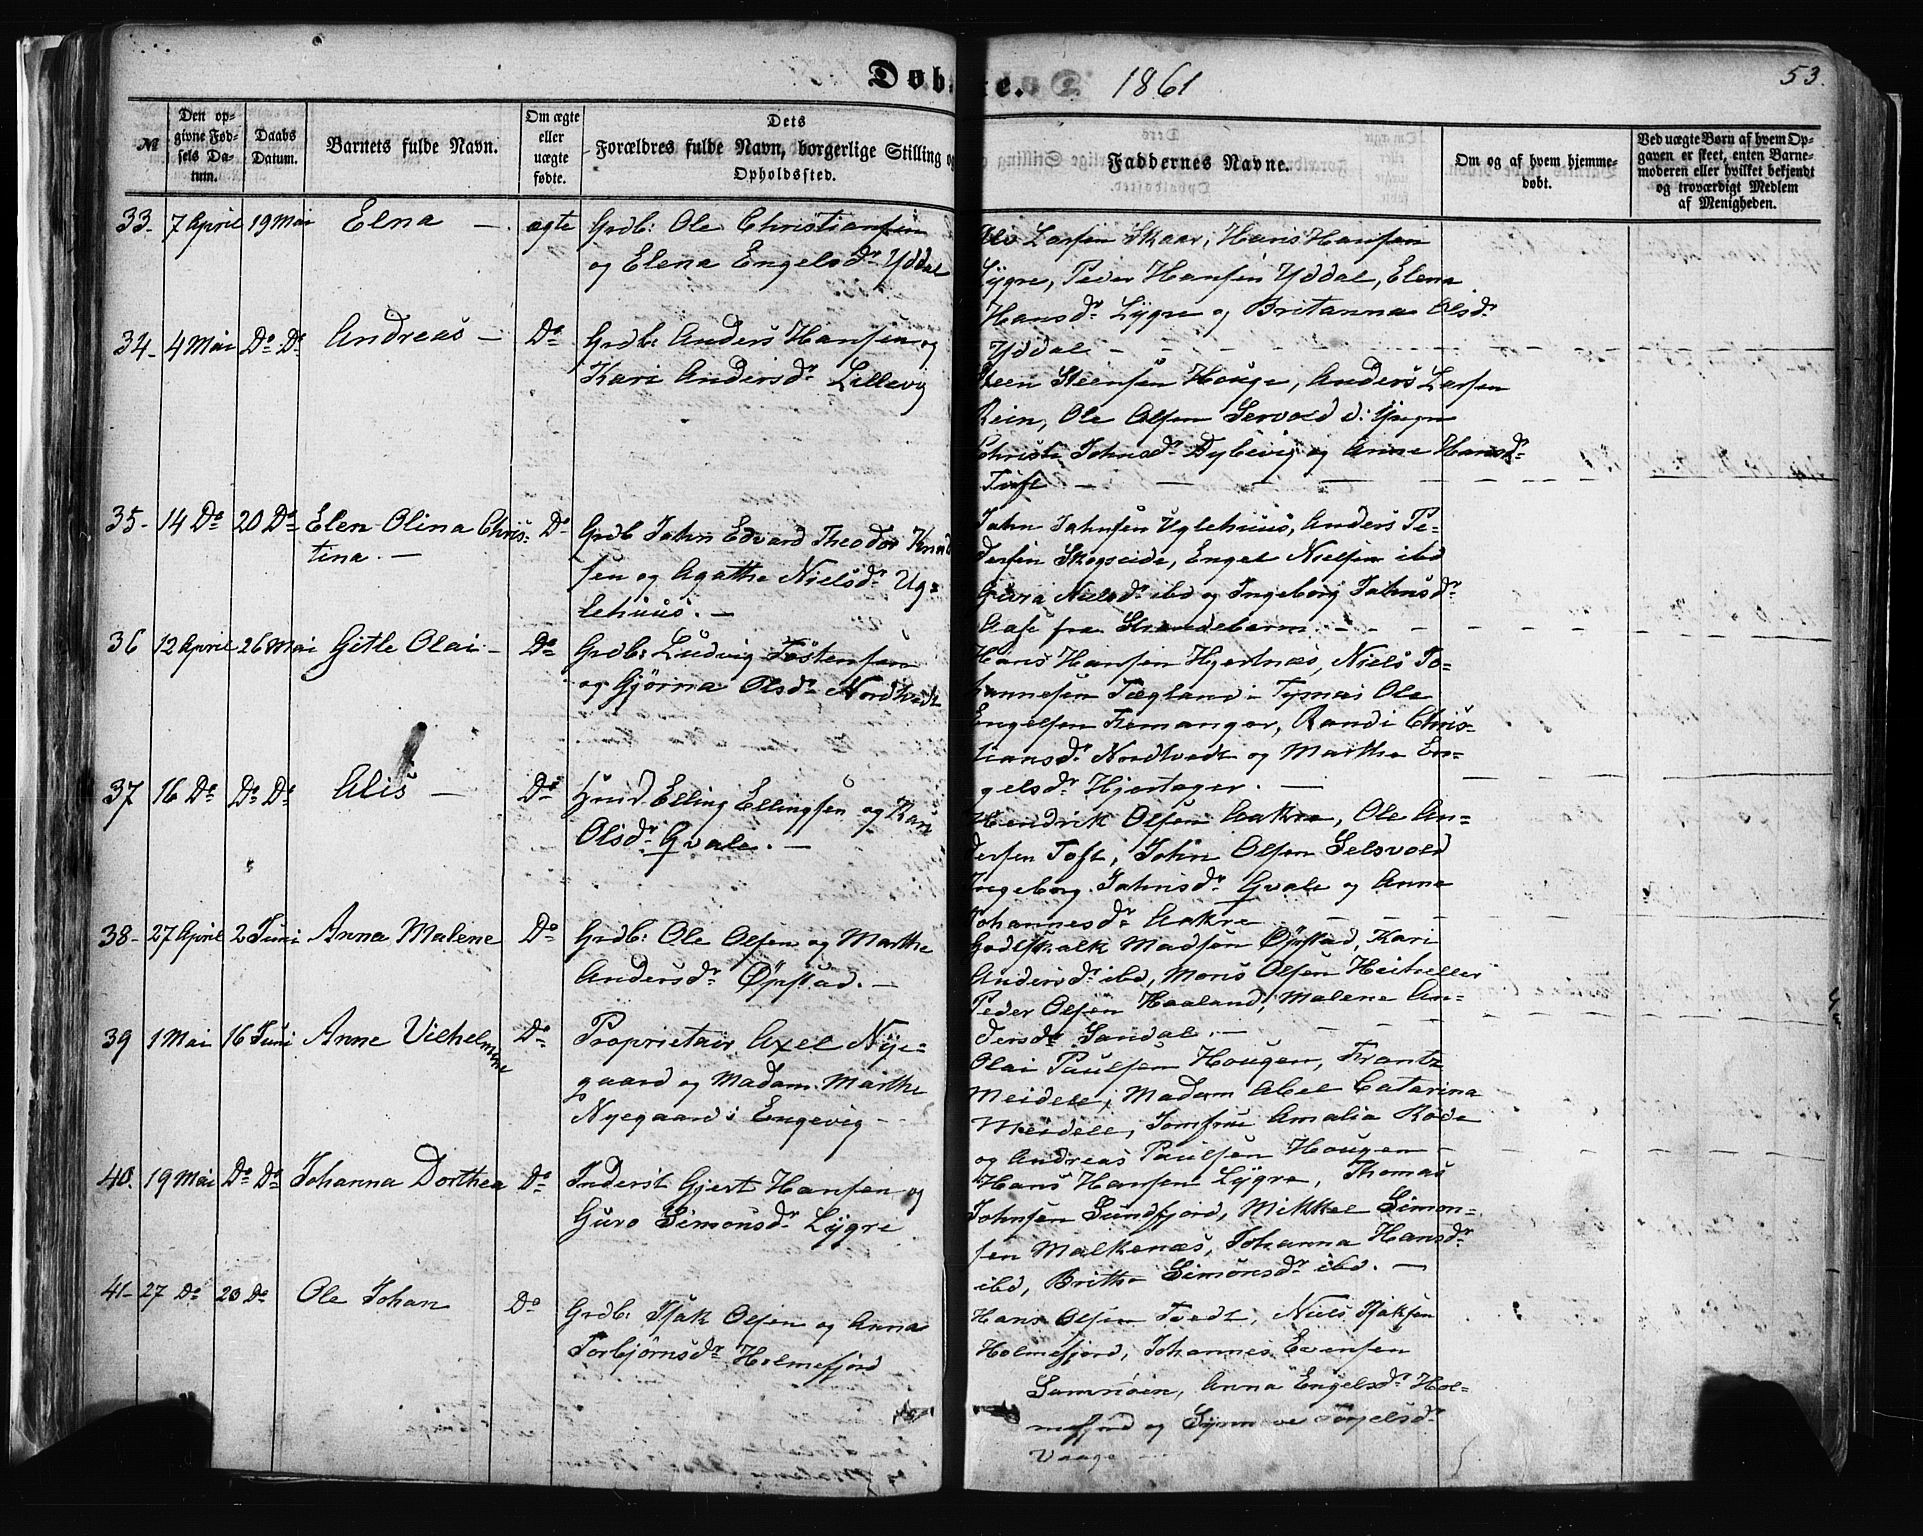 Døb e. 1861
53.
№
Den op-
givne Fød-
sels Da-
tum.
Daabs
Datum.
Barnets fulde Navn.
Om ægte
eller
uægte
fødte.
Dets
Forældres fulde Navn, borgerlige Stilling og
Opholdssted.
Faddernes Navne.
Om og af hvem hjemme-
døbt.
Ved uægte Børn af hvem Op-
gaven er skeet, enten Barne-
moderen eller hvilket bekjendt
og troværdigt Medlem
af Menigheden.
33. 7 April 19 Mai Elna — ægte Grdb: Ole Christiansen
og Elena Engelsdr Yddal
Larsen Skaar, Hans Hansen
Lygre, Peder Hansen Yddal, Elena
Hansdr Lygre og Britanna Olsdr
Yddal
34. 4 Mai Do Do Andreas — Do Grdb: Anders Hansen og
Kari Andersdr Lillevig
Steen Steensen Houge, Anders Larsen
Rein, Ole Olsen
Johnsdr Dybevig og Anne Hansdr
Tveit
35- 14 Do 20 Do Elen Olina Chris- Do Grdb John Edvard Theodor Knud
tina. — sen og Agathe Nielsdr Ug-
lehuus. —
John Johnsen Uglehuus, Anders Pe-
dersen Skogseide, Engel Nielsen ibd
Gura Nielsdr ibd og Ingeborg Johnsdr
Aase fra Strandebarm
36 12 April 26 Mai Gitle Olai — Do Grdb: Ludvig Tostensen
og Gjørna Olsdr Nordtvedt
Hans Hansen Hjertnæs, Niels Jo-
hannesen Tægland i Tysnæs Ole
Engelsen Femanger, Randi Chris-
tiansdr Nordtvedt og Martha En-
gelsdr Hjertager. —
37 16 Do Do Do Alis — Do Huusmd. Elling Ellingsen og Kari
Olsdr Gvale. —
Hendrik Olsen Aakre, Ole An-
dersen Toft, John Olsen Selsvold
Ingeborg Johnsdr Gvale og Anna
Johannesdr Aakre
38- 27 April 2 Juni Anna Malene Do Grdb: Ole Olsen og Martha
Andersdr Øpstad. —
Godtskalk Madsen Øpstad, Kari
Andersdr ibd, Mons Olsen
Peder Olsen Haaland, Malene An-
dersdr Sandal. —
39 1 Mai 16 Juni Anne Vilhelmine Do Proprietair Axel Nye-
gaard og Madam Martha
Nyegaard i Engevig —
Olai Paulsen Hougen, Frantz
Meidell, Madam Abel Catarina
Meidell, Jomfrue Amalia Rode
og Andreas Paulsen Hougen —
40. 19 Mai Do Do Johanna Dorthea Do Inderst Gjert Hansen og
Guro Simonsdr Lygre
Hans Hansen Lygre, Thomas
Johnsen Sundfjord, Mikkel Simon-
sen Malkenæs, Johanna Hansdr
ibd, Britha Simonsdr ibd. —
41- 27 Do 20 Do Ole Johan Do Grdb: Isak Olsen og Anna
Torbjørnsdr Holmefjord
Hans Olsen Tvedt, Niels Isaksen
Holmefjord, Johannes Evensen
Samnøen, Anna Engelsdr Hol-
mefjord og Synnove Torjelsdr
Vaage